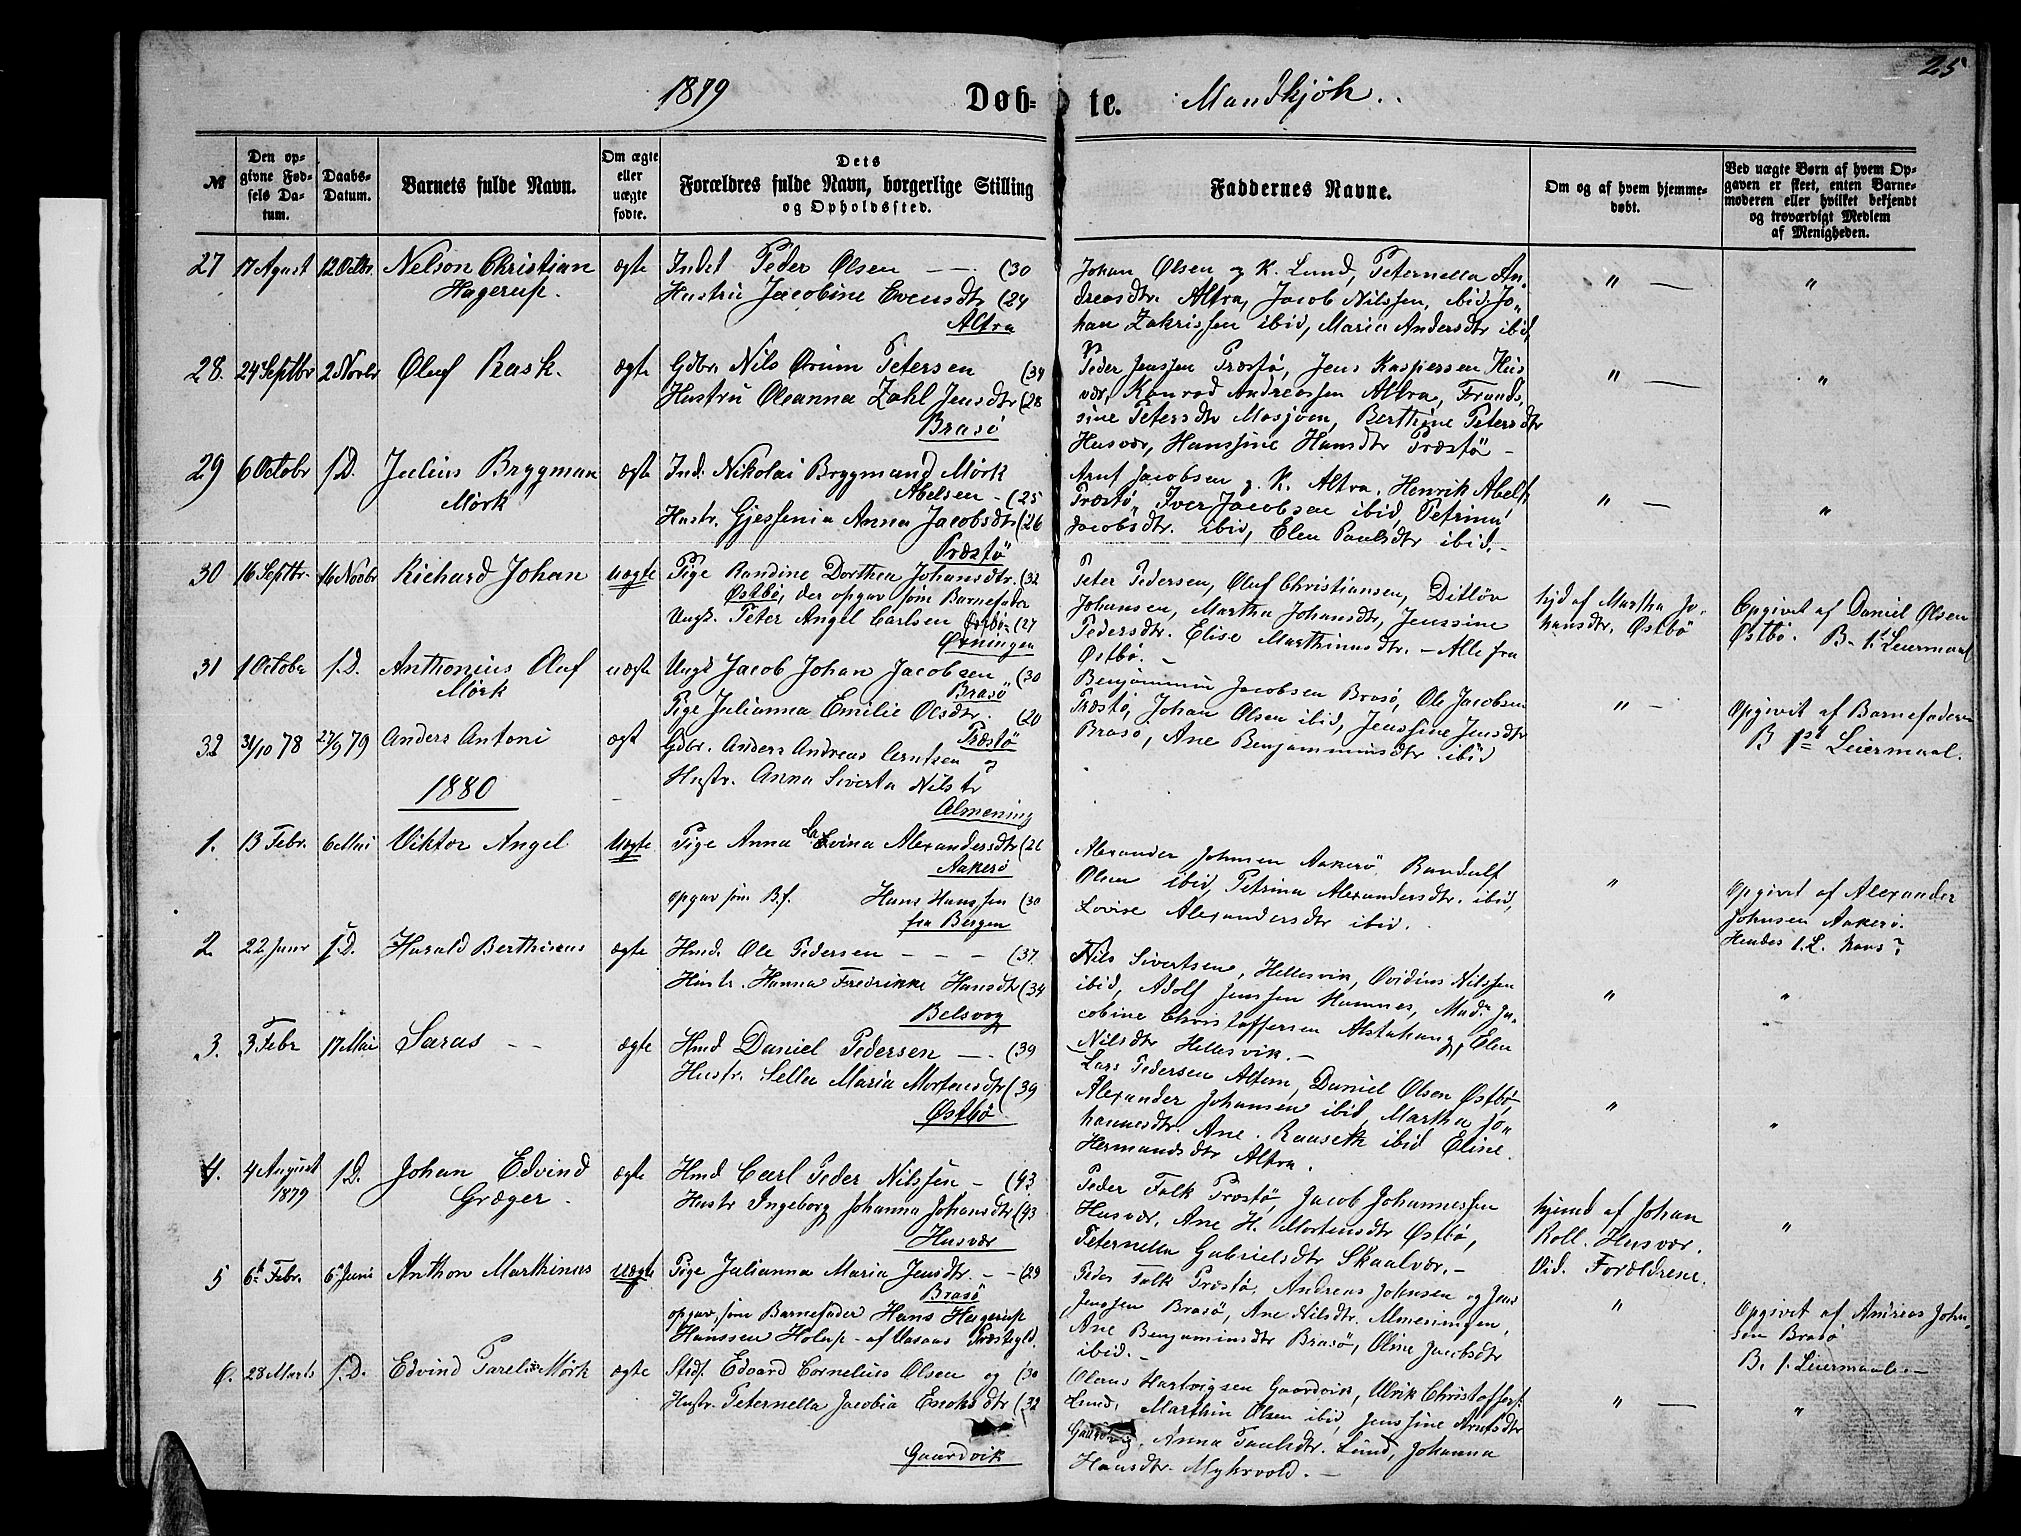 25
1879 Døb- te. Mandkjøn.
№
Den op-
givne Fød-
sels Da-
tum.
Daabs-
Datum.
Barnets fulde Navn.
Om ægte
eller
uægte
fødte.
Dets
Forældres fulde Navn, borgerlige Stilling
og Opholdssted.
Faddernes Navne.
Om og af hvem hjemme-
døbt.
Ved uægte Børn af hvem Op-
gaven er skeet, enten Barne-
moderen eller hvilket bekjendt
og troværdigt Medlem
af Menigheden.
27 17 Agust 12 Octbr. Nelson Christian ægte Indst Peder Olsen — (30
Hagerup. Hustru Jacobine Evensdtr (24
Altra
Johan Olsen og K. Lund, Peternella An-
dreasdtr. Altra, Jacob Nilssen, ibid, Jo-
han Zakrissen ibid, Maria Andersdtr ibid,
" — "
28. 24 Septbr 2 Novbr Oluf Rask. ægte Gdbr. Nils Ørum Petersen (34
Hustru Oleanna Zahl Jensdtr (28
Brasø
Peder Jenssen Præstø, Jens Kaspersen Hus
vær, Konrad Andreassen Altra, Frands,
sine Petersdtr Mosjøen, Berthine Petersdtr
Husvær, Hanssine Hansdtr Præstø -
" — "
29 6 Octobr s.D. Julius Brygman ægte Ind. Nikolai Brygmand Mørk
Mørk Abelsen - (25
Hustr. Gjessenia Anna Jacobsdtr (26
Præstø
Arnt Jacobsen g. K. Altra, Henrik Abels.
Præstø, Iver Jacobsen ibid, Petrina
Jacobsdtr. ibid, Elen Paulsdtr ibid. -
" — "
30 16 Septbr. 16 Novbr Richard Johan uægte Pige Randine Dorthea Johansdtr. (32
Østbø, der opgav som Barnefader
Ungk. Peter Angel Carlsen (27
Øvningen
Peter Pedersen, Oluf Christiansen, Ditløv
Johansen, Martha Johansdtr, Jenssine
Pedersdtr. Elise Marthinusdtr. - Alle fra
Østbø. -
hjd af Martha Jo-
hansdtr. Østbø
Opgivet af Daniel Olsen
Østbø. B. 1ste Leiermaal
31 1 Octobr s.D. Anthonius Oluf uægte Ungk Jacob Johan Jacobsen (30
Mørk Brasø
Pige Julianna Emilie Olsdtr. (20
Præstø
Benjammin Jacobsen Brasø, Ole Jacobsen
Præstø, Johan Olsen ibid, Jenssine Jensdtr
Brasø, Ane Benjamminsdtr ibid
" -
Opgivet af Barnefaderen
B 1ste Leiermaal.
32 31/10 78 27/9 79 Anders Antoni ægt Gdbr. Anders Andreas Arntsen
Hustr. Anna Siverta Nilsdtr
Almening
1880
1. 13 Febr. 6 Mai Viktor Angel Uægte Pige Anna Lavina Alexandersdtr (21
Aakerø
opgav som B.f. Hans Hanssen (30
fra Bergen
Alexander Johnsen Aakerø, Randulf
Olsen ibid, Petrina Alexandersdtr. ibid,
Lovise Alexandersdtr ibid.
"
Opgivet af Alexander
Johnsen Aakerø.
Hendes 1. L. hans?
2. 22 Janr s.D. Harald Berthinus ægte Hmd. Ole Pedersen - - - (37.
Hustr. Hanna Fredrikke Hansdtr (34
Belsvog
Nils Sivertsen, Hellesvik, Ovidius Nilssen
ibid, Adolf Jenssen Hamnes, Mad. Ja-
cobine Christoffersen Alstahaug, Elen
Nilsdtr Hellesvik. -
" "
3. 3 Febr 17 Mai Saras - - ægte Hmd Daniel Pedersen - . (39
Hustr. Sella Maria Mortensdtr (39
Østbø
Lars Pedersen Altern, Daniel Olsen Østbø
Alexander Johansen ibid, Martha Jo-
hannesdtr. Ane . ibid Eline
Hermandsdtr Altra.
" "
4. 4 August s.D. Johan Edvind ægte Hmd Carl Peder Nilssen - (43
1879 Græger. Hustr Ingeborg Johanna Johansdtr (43
Husvær
Peder Falk Præstø, Jacob Johannessen
Husvær, Ane H. Mortensdtr Østbø,
Peternella Gabrielsdtr Skaalvær. -
hjemd af Johan
Roll. Husvær.
Vid. Forældrene.
"
5 6te Febr. 6te Juni Anthon Marthinus uægte Pige Julianna Maria Jensdtr. - - (29
Brasø
opgav som Barnefader Hans Hagerup
Hanssen Holup - af Præstegld.
Peder Falk Præstø, Andreas Johnsen og Jens
Jenssen Brasø, Ane Nilsdtr. Almeningen,
Ane Benjaminsdtr Brasø, Oline Jacobsdtr
ibid. -
"
Opgivet af Andreas John-
sen Brasø
B. 1. Leiermaal. -
6. 28 Marts s.D. Edvind Parelius Mørk ægte Stdf. Edvard Cornelius Olsen og (30
Hustr. Peternella Jacobia Enoksdtr (32
Gaardvik
Olaus Hartvigsen Gaardvik, Ulrik Christoffers.
Lund, Marthin Olsen ibid, Jenssine Arntsdtr
Gaardvig, Anna Paulsdtr. Lund, Johanna
Hansdtr. Mykevold. -
" — "